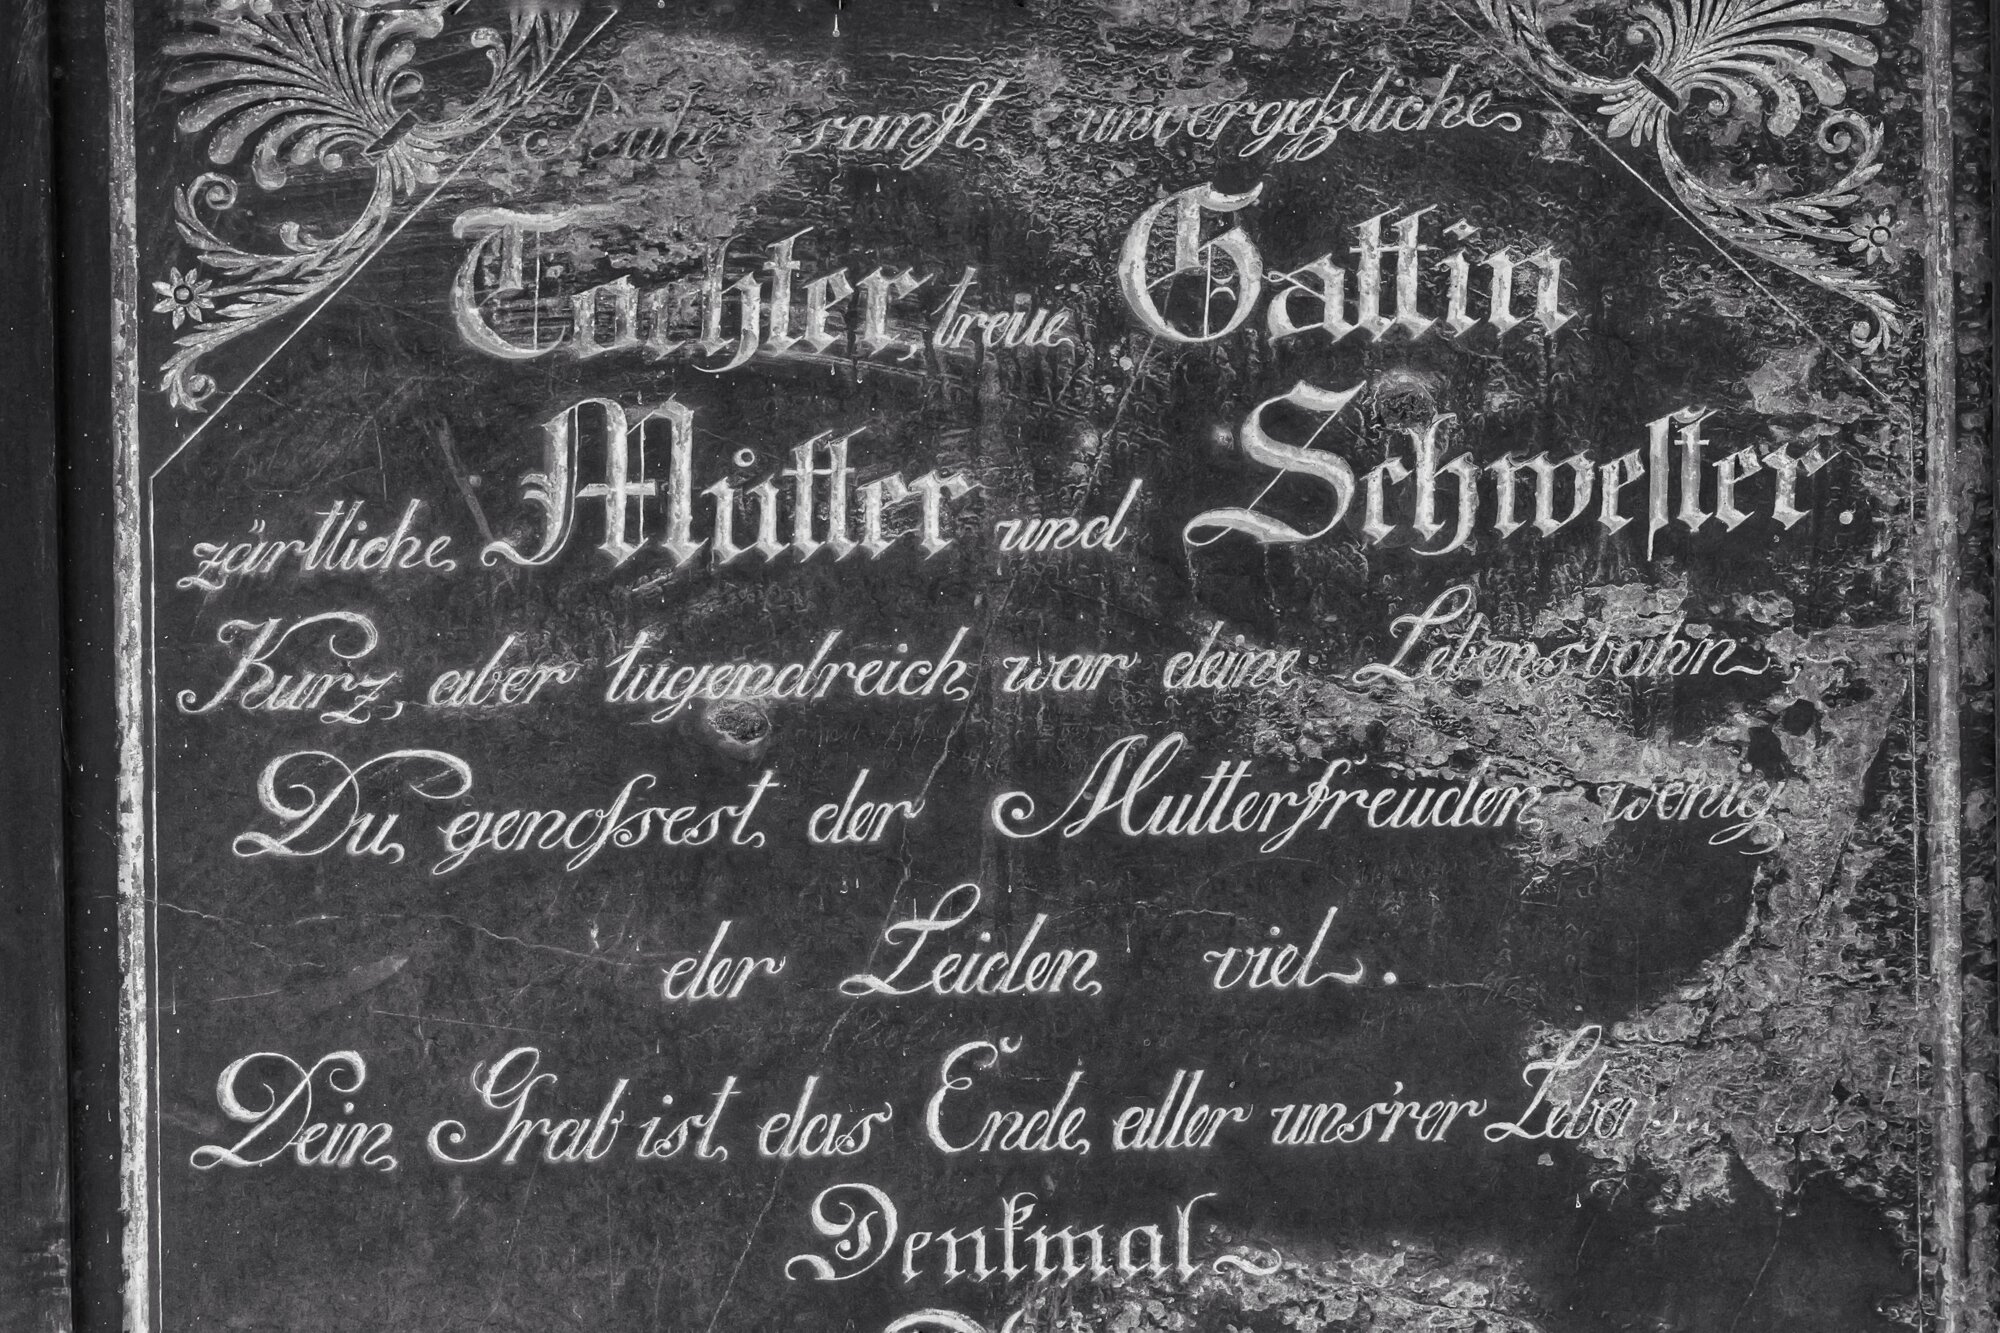 Ruhe sanft unvergeßliche
Tochter, treue Gattin
zärtliche Mutter und Schwester.
Kurz, aber tugendreich war deine Lebensbahn,
Du genoßsest der Mutterfreuden wenig
der Leiden viel.
Dein Grab ist das Ende aller uns'rer
Denkmal